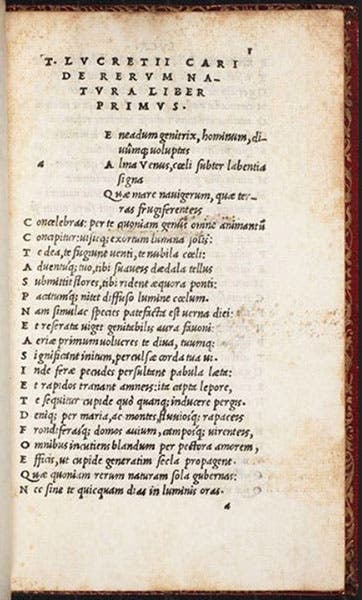 1
T. LVCRETII CARI
DE RERVM NA-
TVRA LIBER
PRIMVS.
E neadum genitrix, hominum, di-
uúmq; uoluptas
a A lma Venus, cœli subter labentia
signa
Q uæ mare nauigerum, quæ ter-
ras frugiferenteis
C oncelebras: per te quoniam genus omne animantũ
C oncipitur: uisitq; exortum lumina solis:
T e dea, te fugiunt uenti, te nubila cœli:
A duentuq; tuo, tibi suaueis dædala tellus
S ubmittit flores, tibi rident æquora ponti:
P acatumq; nitet diffuso lumine cœlum.
N am simulac species patefacta est uerna diei:
E t reserata uiget genitabilis aura fauoni:
A eriæ primum uolucres te diua, tuumq;
S ignificant initum, perculsæ corda tua ui.
I nde feræ pecudes persultant pabula læta:
E t rapidos tranant amneis: ita capta lepore,
T e sequitur cupide quò quanq; inducere pergis.
D eniq; per maria, ac montes, fluuiosq; rapaces
F rondiferasq; domos auium, camposq; uirenteis,
O mnibus incutiens blandum per pectora amorem,
E fficis, ut cupide generatim secla propagent.
Q uæ quoniam rerum naturam sola gubernas:
N ec sine te quicquam dias in luminis oras
a